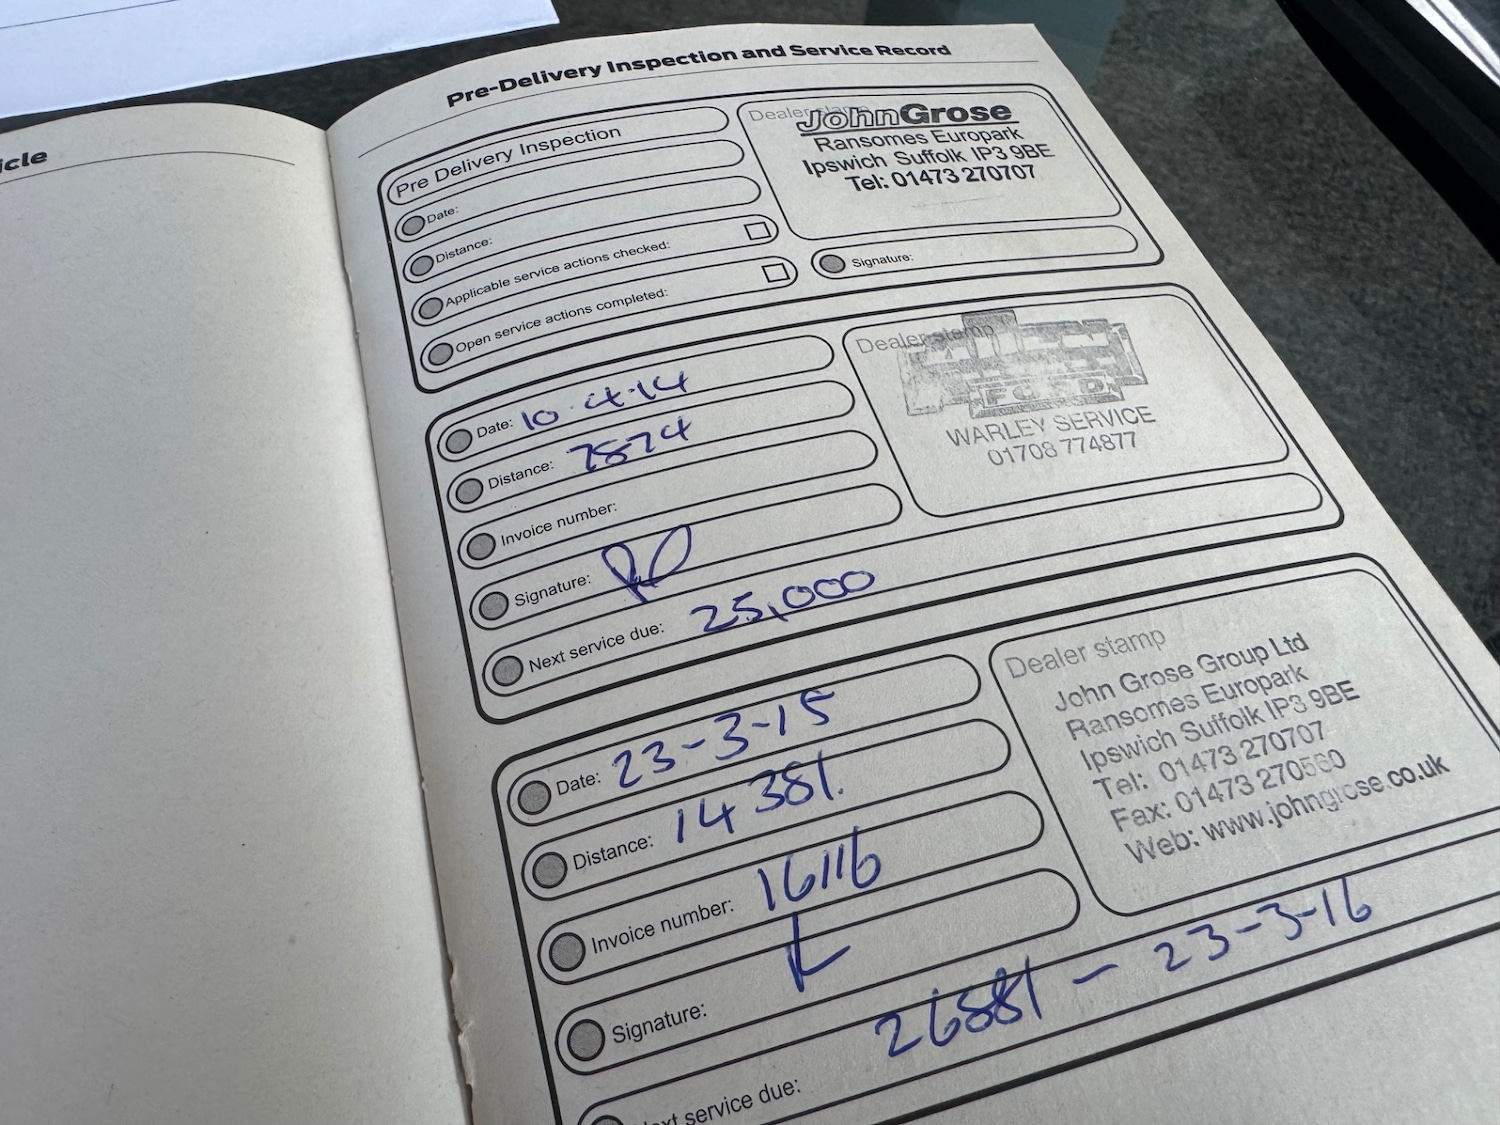 icle
Pre-Delivery Inspection and Service Record
Pre Delivery Inspection
Date:
Distance:
Applicable service actions checked:
Open service actions completed:
Dealer stamp
JohnGrose
Ransomes Europark
Ipswich Suffolk IP3 9BE
Tel: 01473 270707
Signature:
Date: 10.4.14
Distance: 7874
Invoice number:
Signature:
Next service due: 25,000
Dealer stamp
FORD
WARLEY SERVICE
01708 774877
Date: 23-3-15
Distance: 14381.
Invoice number: 16116
Signature:
Next service due: 26881 - 23-3-16
Dealer stamp
John Grose Group Ltd
Ransomes Europark
Ipswich Suffolk IP3 9BE
Tel: 01473 270707
Fax: 01473 270560
Web: www.johngrose.co.uk